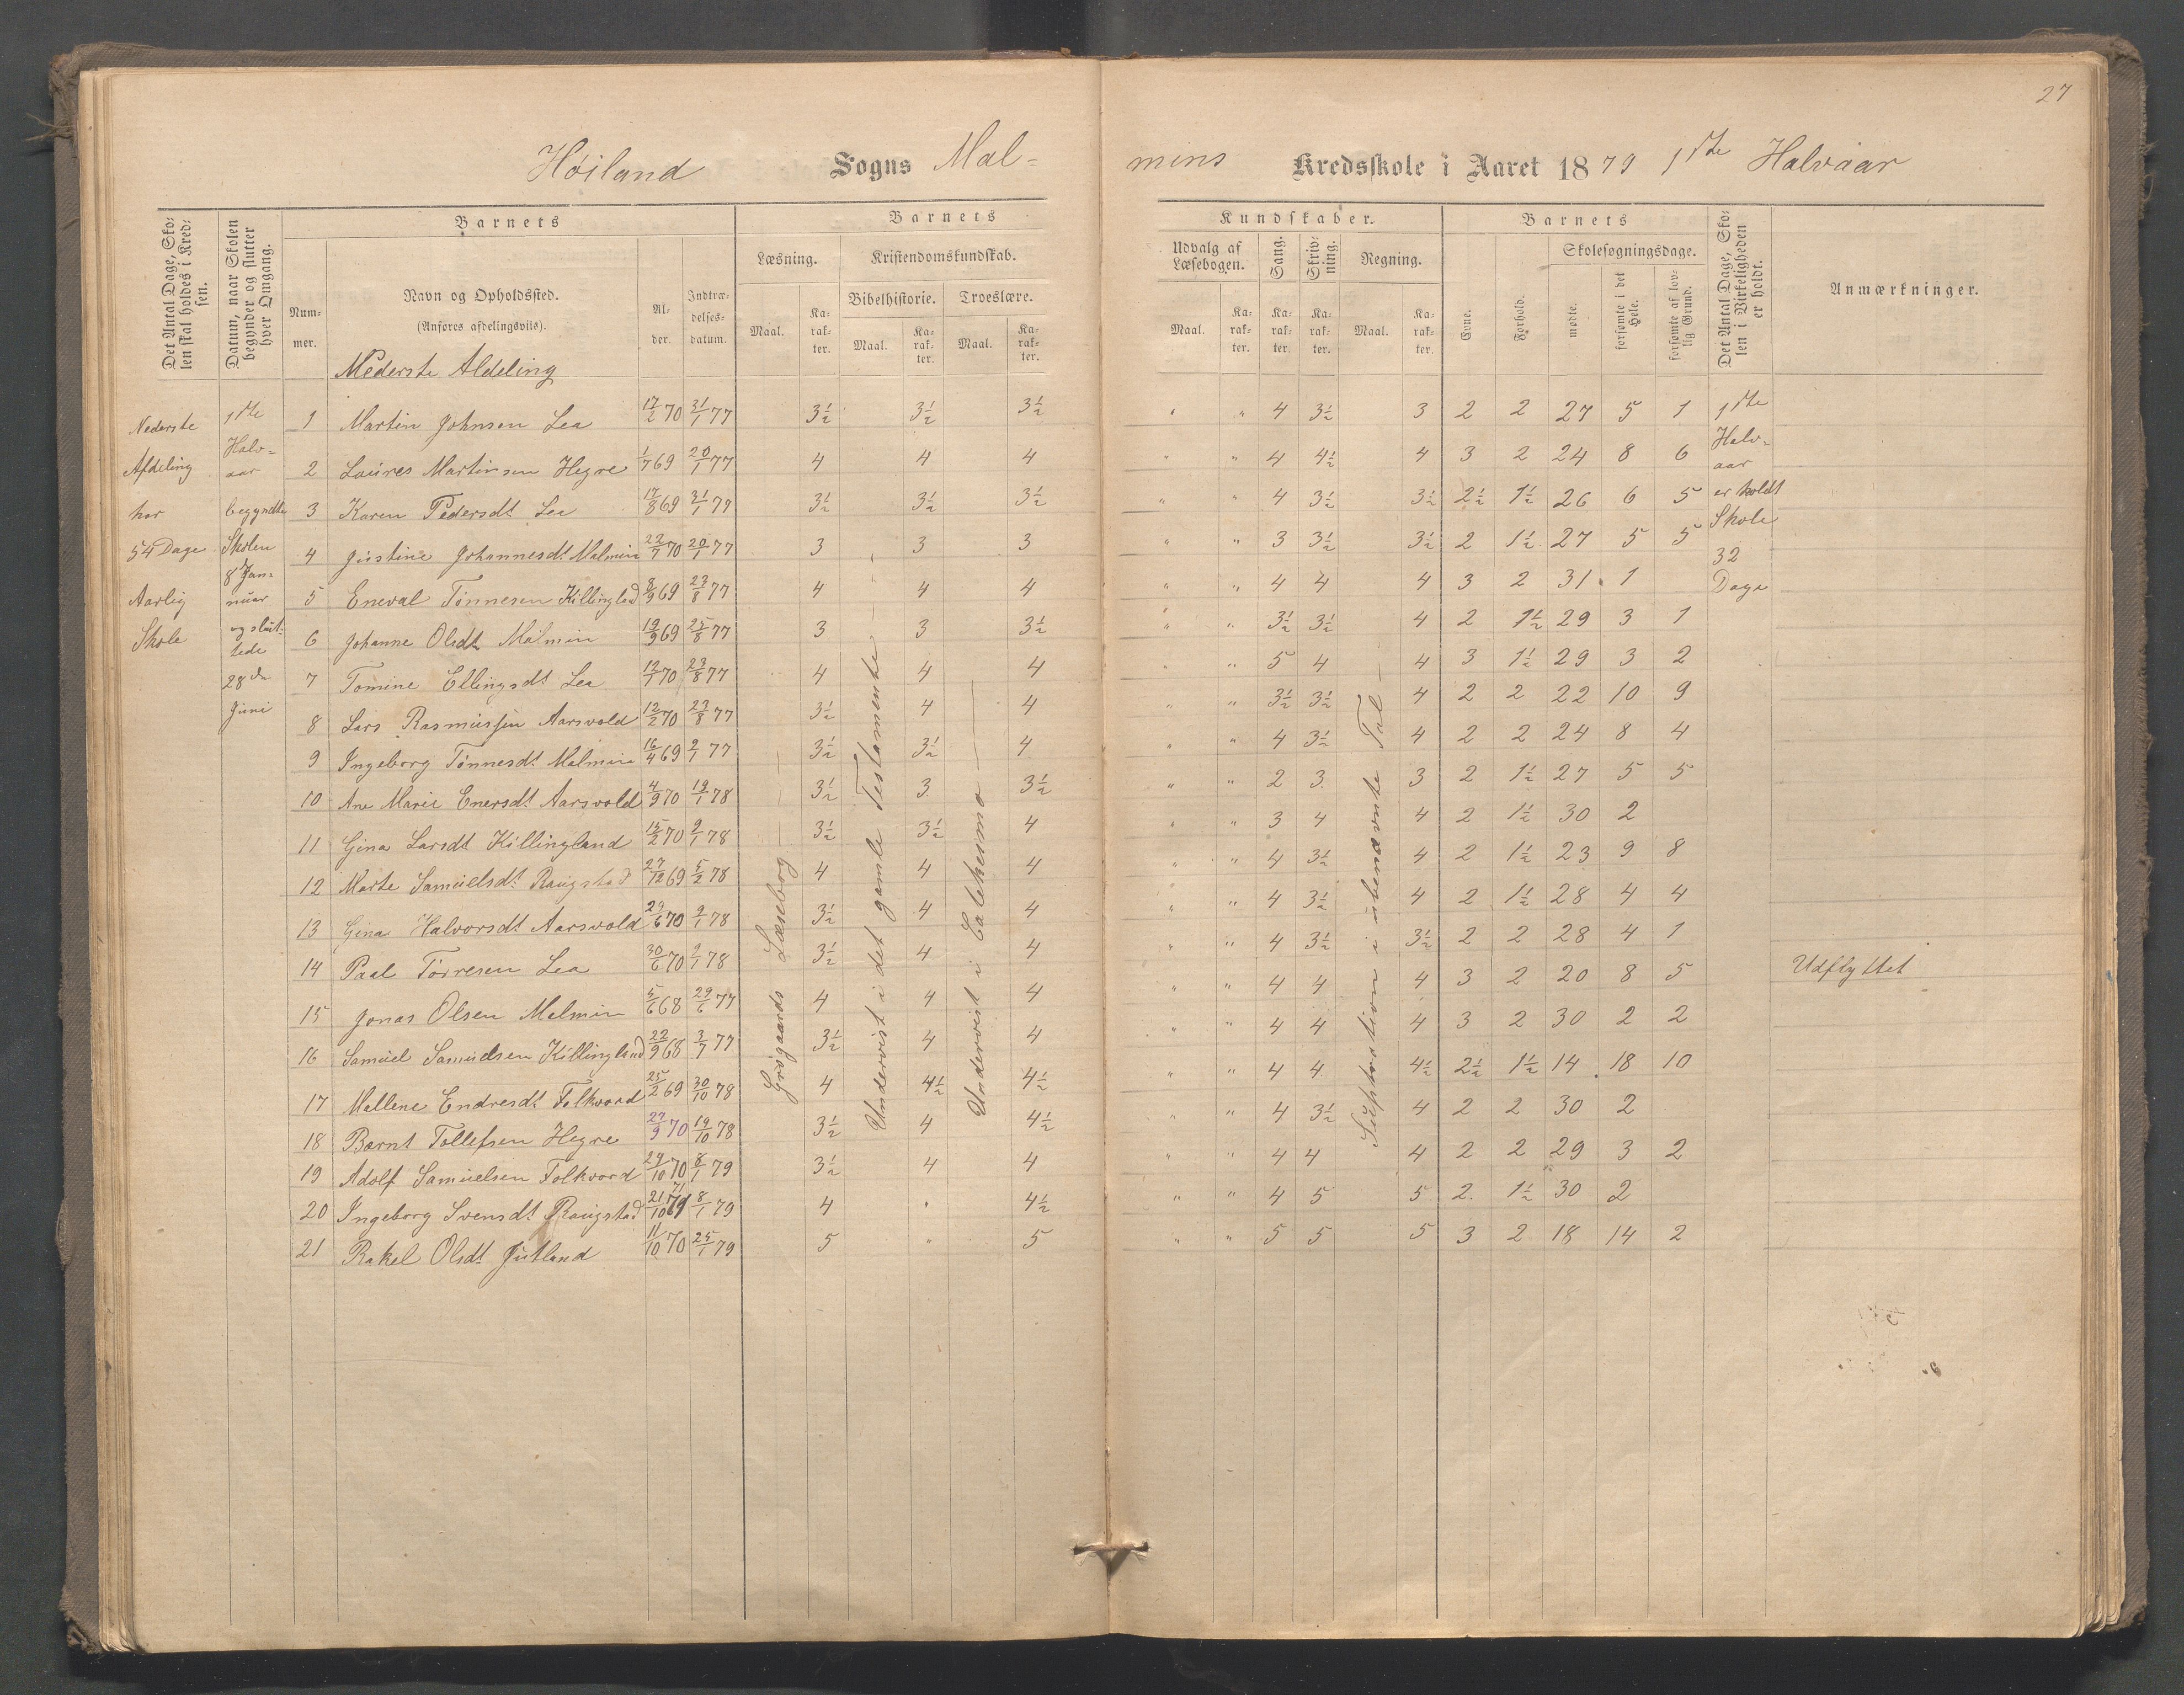 27
Høiland Sogns Mal-
mins Kredsskole i Aaret 1879 1ste Halvaar
Det Antal Dage, Skolen skal holdes i Kredsen.
Datum, naar Skolen begynder og slutter hver Omgang.
Barnets
Nummer.
Navn og Opholdssted.
(Anføres afdelingsviis).
Alder.
Indtrædelsesdatum.
Barnets
Læsning.
Kristendomskundskab.
Bibelhistorie. Troeslære.
Maal. Karakter. Maal. Karakter. Maal. Karakter.
Kundskaber.
Udvalg af Læsebogen.
Sang.
Skrivning.
Regning.
Maal. Karakter. Karakter. Karakter. Maal. Karakter.
Barnets
Evne.
Forhold.
Skolesøgningsdage.
mødte.
forsømte i det Hele.
forsømte af lovlig Grund.
Det Antal Dage, Skolen i Virkeligheden er holdt.
Anmærkninger.
Nederste Afdeling
Nederste
Afdeling
har
54 Dage
Aarlig
Skole
1ste
Halv=
aar
begyndte
Skolen
8 Jan=
nuar
og slut=
tede
28de
Juni
1 Martin Johnsen Lea 17/2 70 31/1 77 3½ 3½ 3½ " " 4 3½ 3 2 2 27 5 1
2 Laures Martinsen Hegre 1/7 69 20/1 77 4 4 4 " " 4 4½ 4 3 2 24 8 6
3 Karen Pedersdt Lea 17/8 69 31/1 79 3½ 3½ 3½ " " 4 3½ 3½ 2½ 1½ 26 6 5
4 Justine Johannesdt Malmin 22/7 70 20/1 77 3 3 3 " " 3 3½ 3½ 2 1½ 27 5 5
5 Eneval Tønnesen Killingland 8/9 69 23/8 77 4 4 4 " " 4 4 4 3 2 31 1
6 Johanne Olsdt Malmin 19/9 69 25/8 77 3 3 3½ " " 3½ 3½ 4 2 1½ 29 3 1
7 Tomine Ellingsdt Lea 13/1 70 23/8 77 4 4 4 " " 5 4 4 3 1½ 29 3 2
8 Lars Rasmussen Aarsvold 12/2 70 23/8 77 3½ 4 4 " " 3½ 3½ 4 2 2 22 10 9
9 Ingeborg Tønnesdt Malmin 16/4 69 2/1 77 3½ 3½ 4 " " 4 3½ 4 2 2 24 8 4
10 Ane Marie Enersdt Aarsvold 4/9 70 19/1 78 3½ 3 3½ " " 2 3 3 2 1½ 27 5 5
11 Gina Larsdt Killingland 15/2 70 9/1 78 3½ 3½ 4 " " 3 4 4 2 1½ 30 2
12 Marte Samuelsdt Raugstad 27/12 69 5/2 78 4 4 4 " " 4 3½ 4 2 1½ 23 9 8
13 Gina Halvorsdt Aarsvold 29/6 70 9/1 78 3½ 4 4 " " 4 3½ 4 2 1½ 28 4 4
14 Paal Tørresen Lea 30/6 70 2/1 78 3½ 4 4 " " 4 3½ 3½ 2 2 28 4 1
15 Jonas Olsen Malmin 5/6 68 29/6 77 4 4 4 " " 4 4 4 3 2 20 8 5 Udflyttet
16 Samuel Samuelsen Killingland 22/9 68 3/7 77 3½ 4 4 " " 4 4 4 3 2 30 2 2
17 Mallene Endresdt Folkvord 25/2 69 30/10 78 4 4½ 4½ " " 4 4 4½ 2½ 1½ 14 18 10
18 Barnt Tollefsen Hegre 27/9 70 19/10 78 3½ 4 4½ " " 4 3½ 4 2 2 30 2
19 Adolf Samuelsen Folkvord 29/10 70 8/1 79 3½ 4 4 " " 4 4 4 2 2 29 3 2
20 Ingeborg Svensdt Raugstad 21/10 8/1 79 4 " 4½ " " 4 5 5 2 1½ 30 2
21 Rakel Olsdt Jutland 11/10 70 25/1 79 5 " 5 " " 5 5 5 3 2 18 14 2
Grøgaards Læsebog
Undervist i det gamle Testamente
Undervist i Catekesmo
i ubenævnte Tal
1ste
Halv=
aar
er holdt
Skole
32
Dage